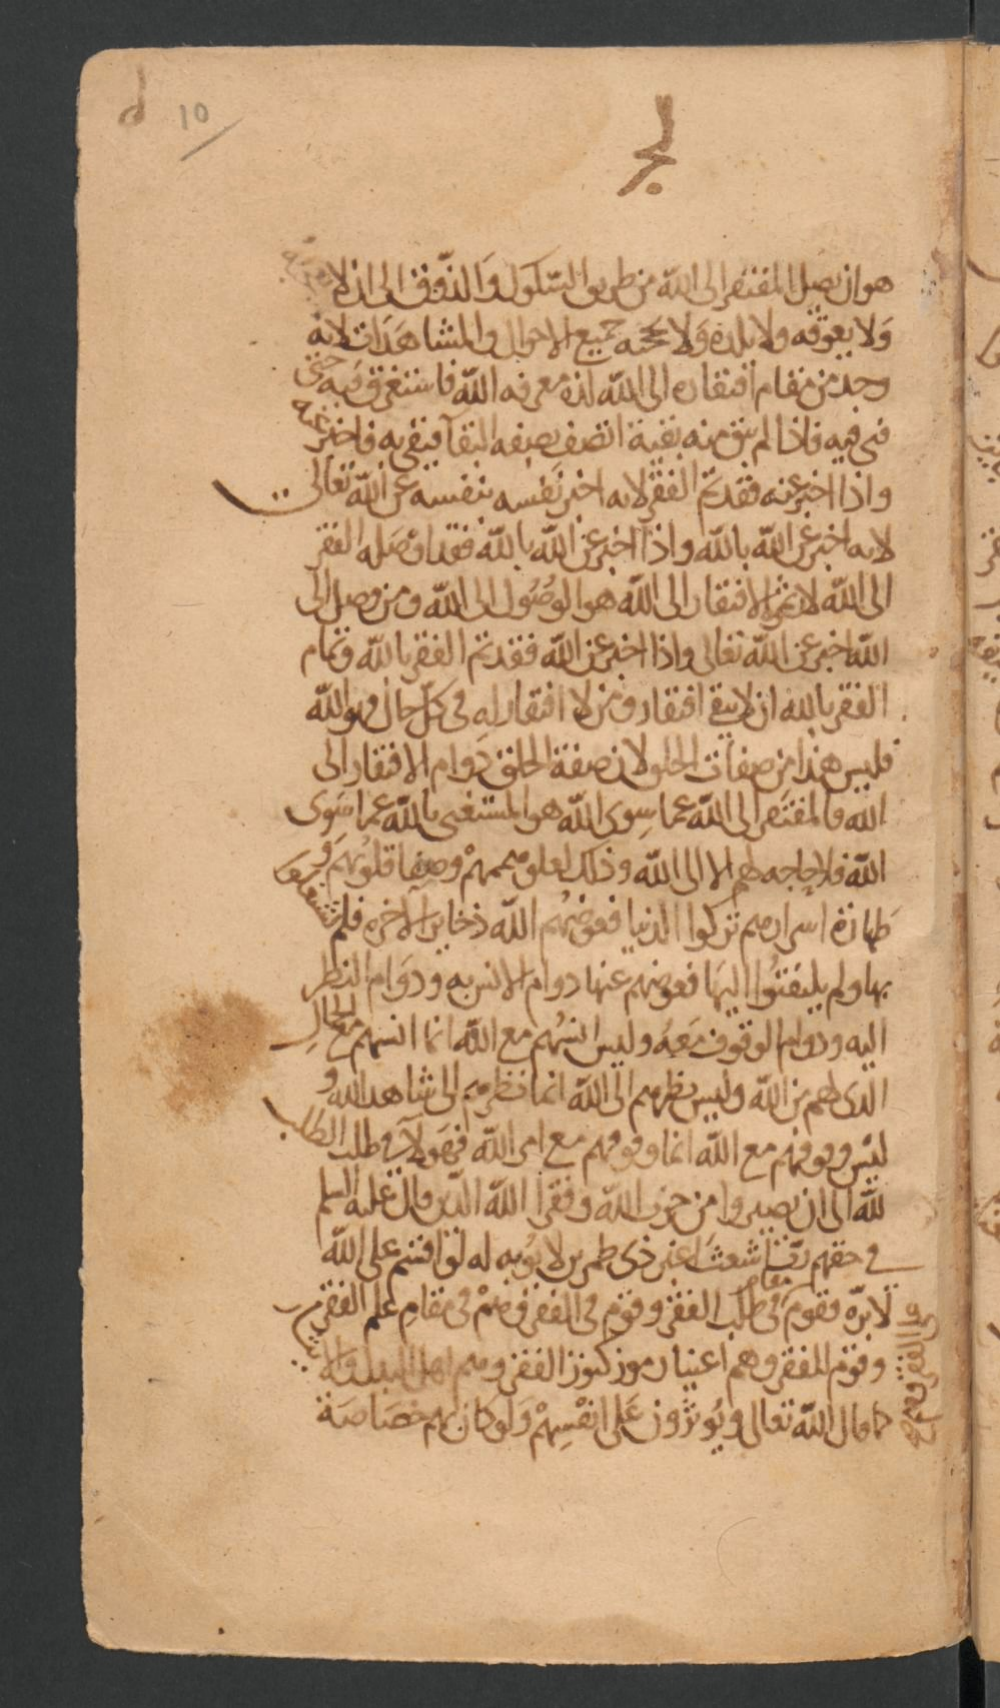 10
هو ان يصل المفتقر الى الله من طريق السكون والذوق الى ان لا
ولا يعوقه ولا يلده ولا يحجبه جميع الاحوال والمشاهدات لانه
وجد من مقام افتقاره الى الله انه معرفه الله فاستغرق فيه حتى
فنى فيه فاذا لم يبق منه بقية اتصف بصفه البقا فبقى به فاخبر عنه
واذا اخبر عنه فقد تم الفقر لانه اخبر نفسه بنفسه عن الله تعالى
لانه اخبر عن الله بالله واذا اخبر عن الله بالله فقد اوصله الفقر
الى الله لان ثمرة الافتقار الى الله هو الوصول الى الله ومن وصل الى
الله اخبر عن الله تعالى واذا اخبر عن الله فقد تم الفقر بالله وتمام
الفقر بالله ان لا يبقى افتقار ومن لا افتقار له في كل حال فهو لله
فليس هذا من صفات الخلق لان صفة الخلق دوام الافتقار الى
الله فالمفتقر الى الله عما سوى الله هو المستغنى بالله عما سوى
الله فلا حاجه لهم الا الى الله وذلك لعلو هممهم وصفا قلوبهم و
طهارة اسرارهم تركوا الدنيا فعوضهم الله ذخاير الاخره فلم يشتغلوا
بها ولم يلتفتوا اليها فعوضهم عنها دوام الانس به ودوام النظر
اليه ودوام الوقوف معه وليس انسهم مع الله انما انسهم مع الحال
الذى لهم من الله وليس نظرهم الى الله انما نظرهم الى شاهد الله و
ليس وقوفهم مع الله انما وقوفهم مع امر الله فهولآ في طلب الطلب
لله الى ان يصيروا من حزب الله وفقرا الله الذين قال عليه السلم
في حقهم ربّ شعثا غبر ذى طمرين لا يوبه له لو اقسم على الله
لابرّه فقوم في مقام طلب الفقر وقوم في الفقر فهم في مقام علم الفقر
وقوم للفقر وهم اغنيا رموز كنوز الفقر وهم اهل
كما قال الله تعالى ويوثرون على انفسهم ولو كان بهم خصاصة